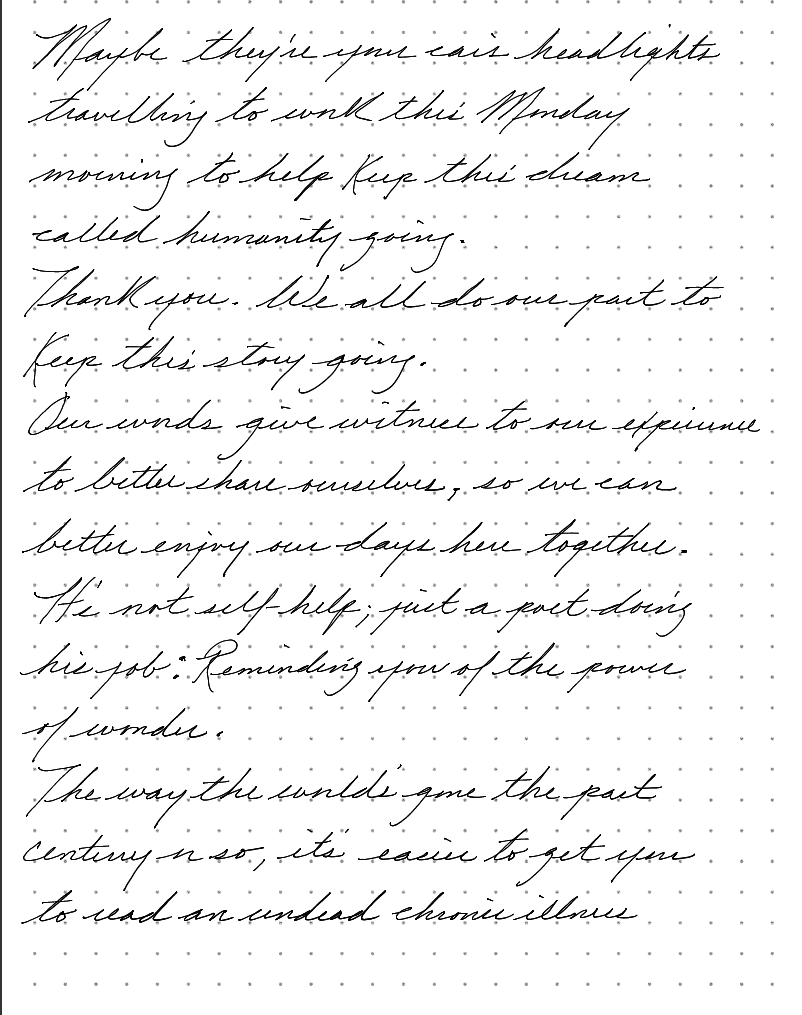 Maybe they're your car's headlights
travelling to work this Monday
morning to help Keep this dream
called humanity going.
Thank you. We all do our part to
Keep this story going.
Our words give witness to our experience
to better share ourselves, so we can
better enjoy our days here together.
It's not self-help; just a poet doing
his job: Reminding you of the power
of wonder.
The way the world's gone the past
century or so, it's easier to get you
to read an undead chronic illness